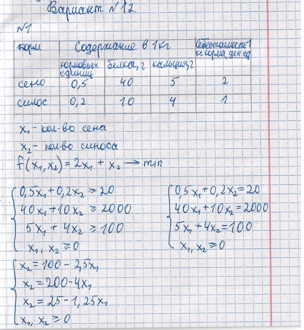 Вариант №12
№1
корм Содержание в 1 кг Себестоимость 1 кг корма, ден.ед
кормовых единиц белка, г кальция, г
сено 0,5 40 5 2
силос 0,2 10 4 1
x₁ - кол-во сена
x₂ - кол-во силоса
f(x₁, x₂) = 2x₁ + x₂ → min
0,5x₁ + 0,2x₂ ≥ 20 0,5x₁ + 0,2x₂ = 20
40x₁ + 10x₂ ≥ 2000 40x₁ + 10x₂ = 2000
5x₁ + 4x₂ ≥ 100 5x₁ + 4x₂ = 100
x₁, x₂ ≥ 0 x₁, x₂ ≥ 0
x₂ = 100 - 2,5x₁
x₂ = 200 - 4x₁
x₂ = 25 - 1,25x₁
x₁, x₂ ≥ 0